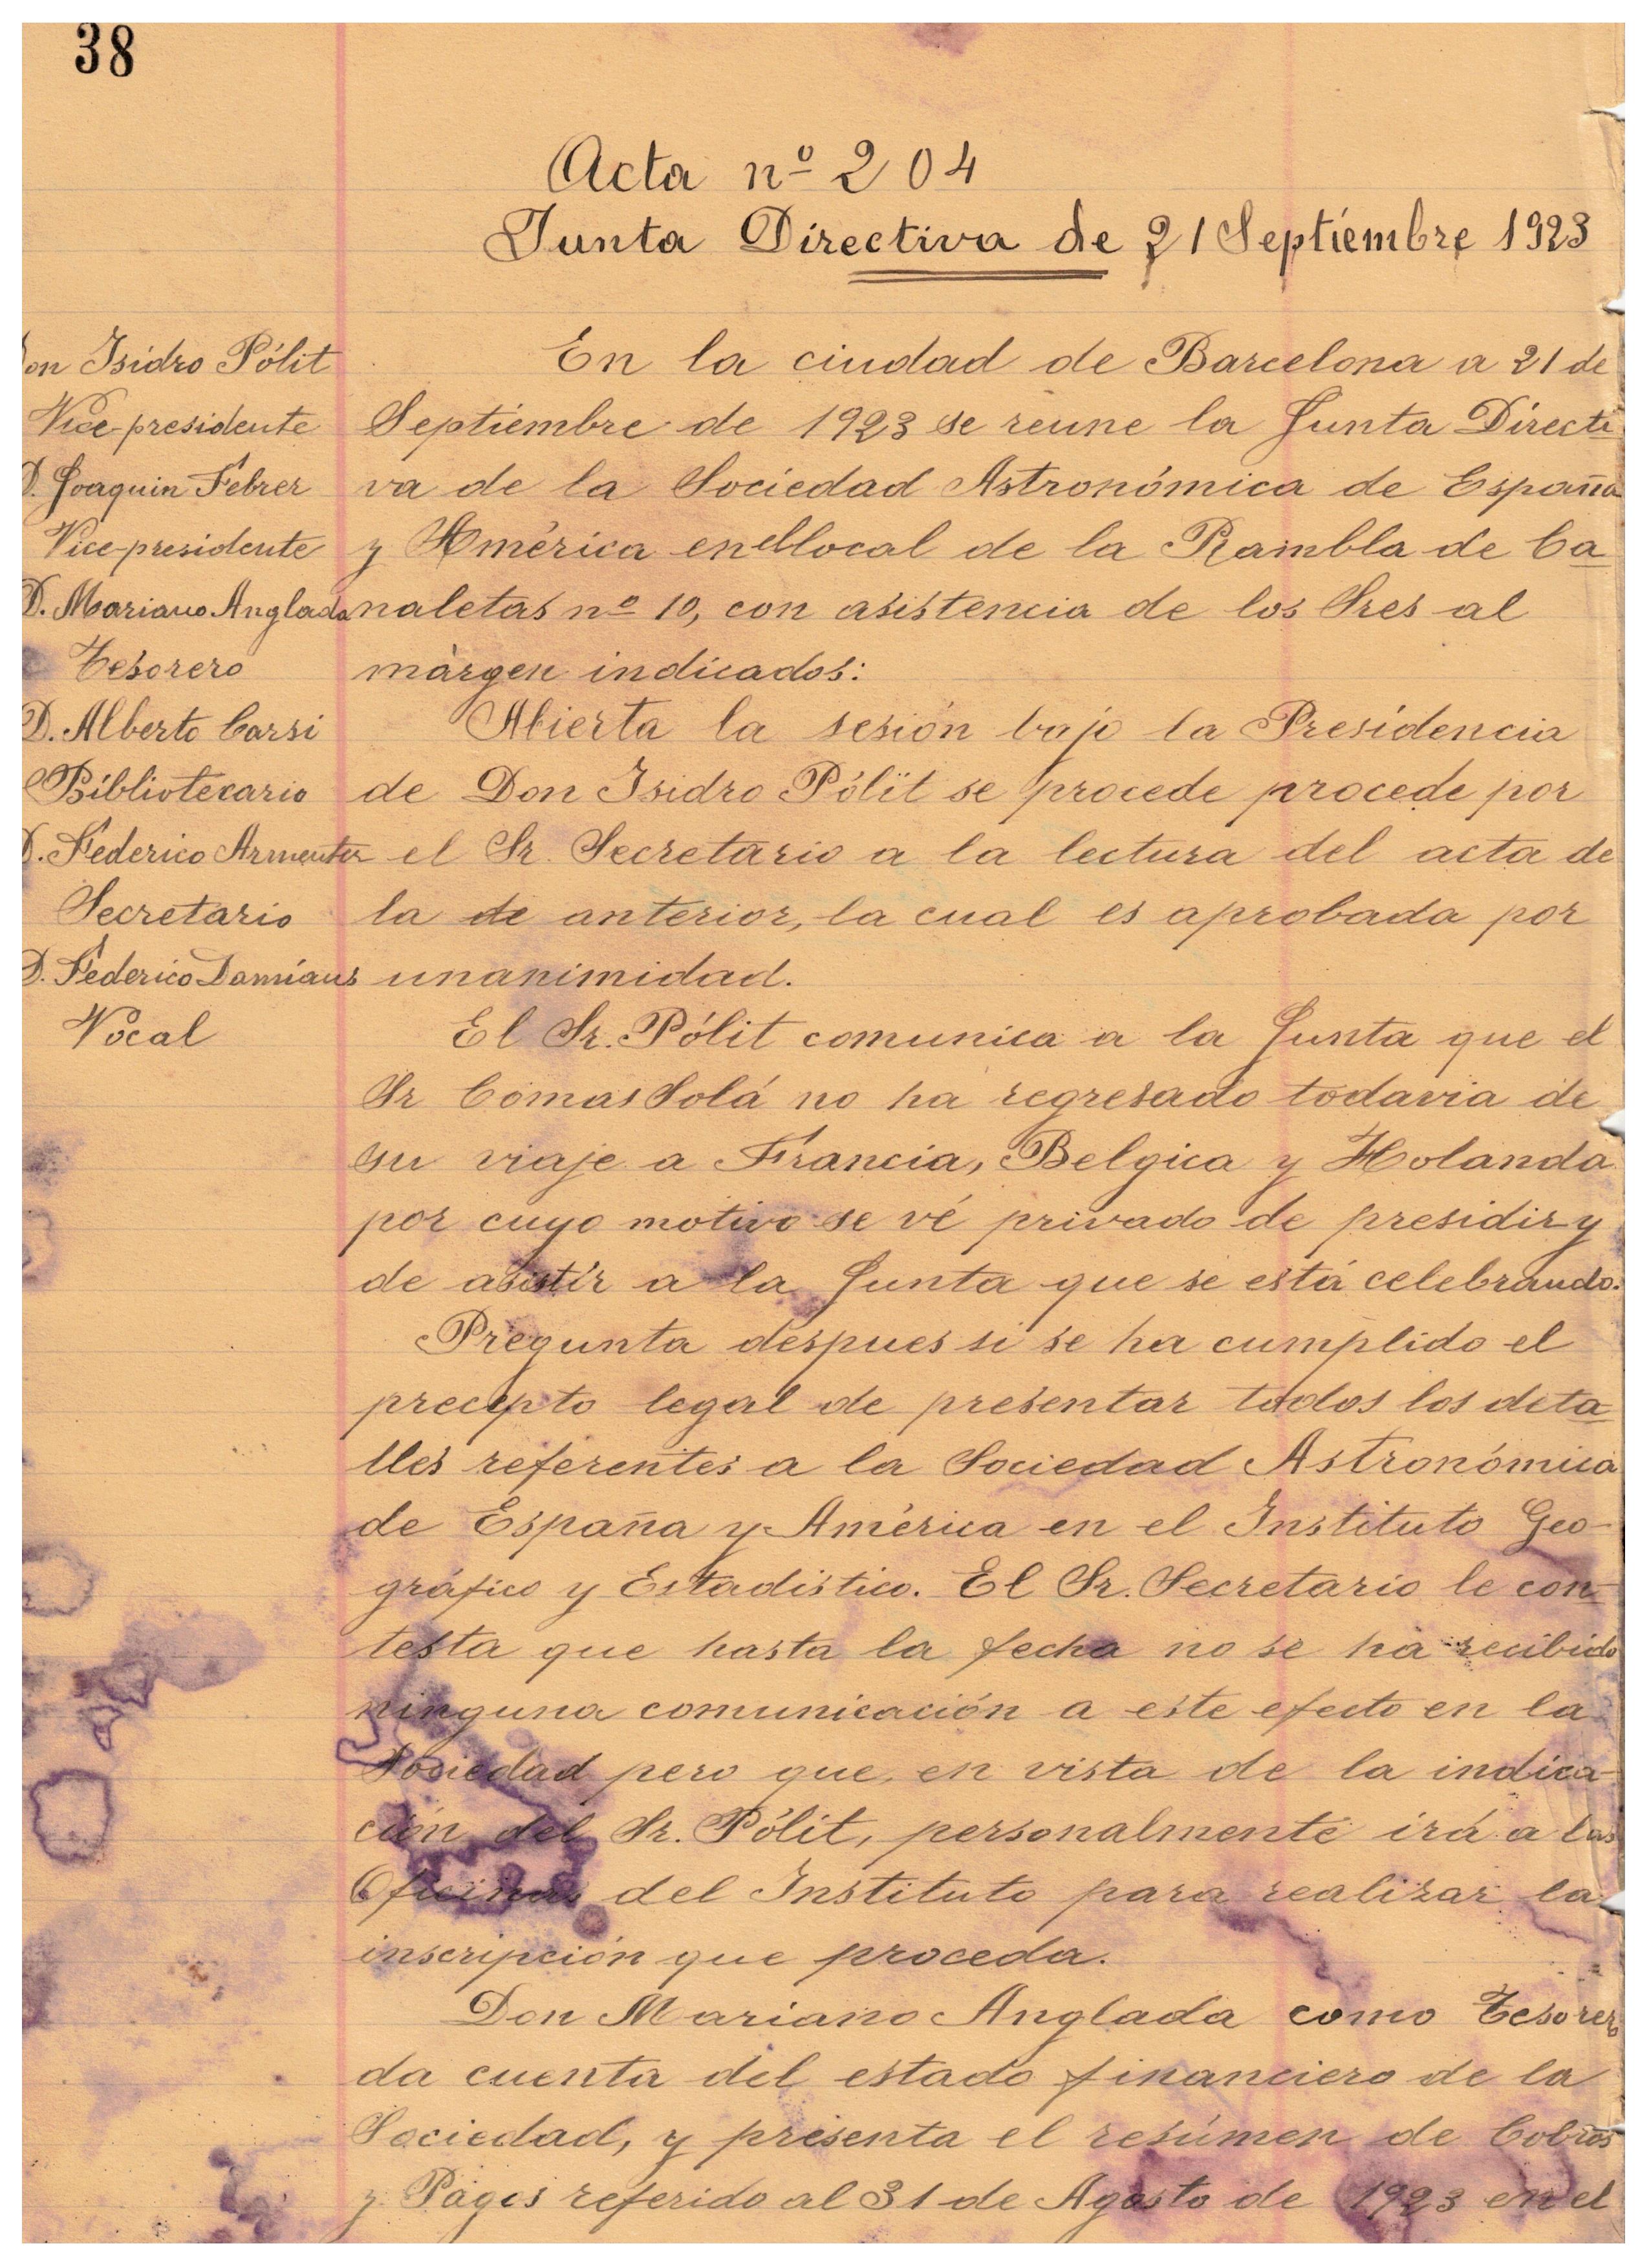 38
Acta nº 204
Junta Directiva de 21 Septiembre 1923
Don Isidro Pólit
Vice-presidente
D. Joaquin Febrer
Vice-presidente
D. Mariano Anglada
Tesorero
D. Alberto Carsi
Bibliotecario
D. Federico Armenter
Secretario
D. Federico Damians
Vocal
En la ciudad de Barcelona a 21 de
Septiembre de 1923 se reune la Junta Directi
va de la Sociedad Astronómica de España
y América en el local de la Rambla de Ca
naletas nº 10, con asistencia de los Sres al
màrgen indicados:
Abierta la sesión bajo la Presidencia
de Don Isidro Pólit se procede procede por
el Sr. Secretario a la lectura del acta de
la de anterior, la cual es aprobada por
unanimidad.
El Sr. Pólit comunica a la Junta que el
Sr Comas Solá no ha regresado todavia de
su viaje a Francia, Belgica y Holanda
por cuyo motivo se vé privado de presidir y
de asistir a la Junta que se está celebrando.
Pregunta despues si se ha cumplido el
precepto legal de presentar todos los deta
lles referentes a la Sociedad Astronómica
de España y América en el Instituto Geo-
gráfico y Estadistico. El Sr. Secretario le con-
testa que hasta la fecha no se ha recibido
ninguna comunicación a este efecto en la
Sociedad pero que, en vista de la indica-
ción del Sr. Pólit, personalmente irá a las
Oficinas del Instituto para realizar la
inscripción que proceda.
Don Mariano Anglada como Tesorero
da cuenta del estado financiero de la
Sociedad, y presenta el resúmen de Cobros
y Pagos referido al 31 de Agosto de 1923 en el